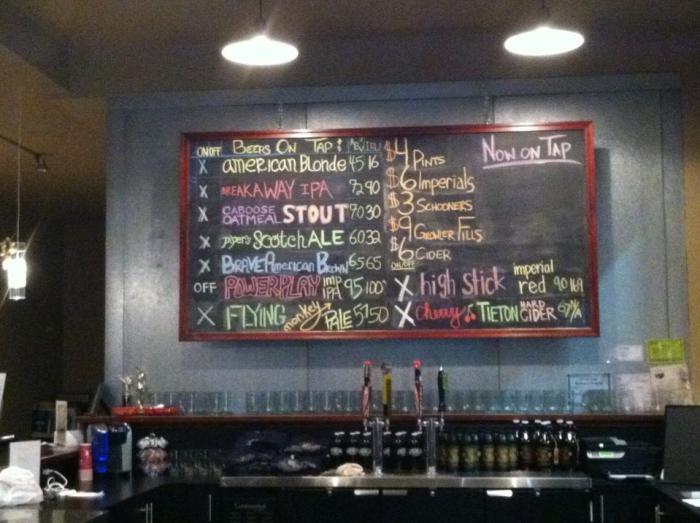 ON OFF Beers On Tap: ABV/IBU
X American Blonde 4.5 16
X Breakaway IPA 7.2 90
X Caboose Oatmeal STOUT 7.0 30
X Scotch ALE 6.0 32
X BRAVE American Brown 6.5 65
OFF POWERPLAY IMP IPA 9.5 100
X FLYING monkey PALE 5.7 50
$4 Pints
$6 Imperials
$3 Schooners
$9 Growler Fills
$6 Cider
ON/OFF
X high stick imperial red 9.0 N/A
X cherry TIETON HARD CIDER N/A
NOW ON TAP